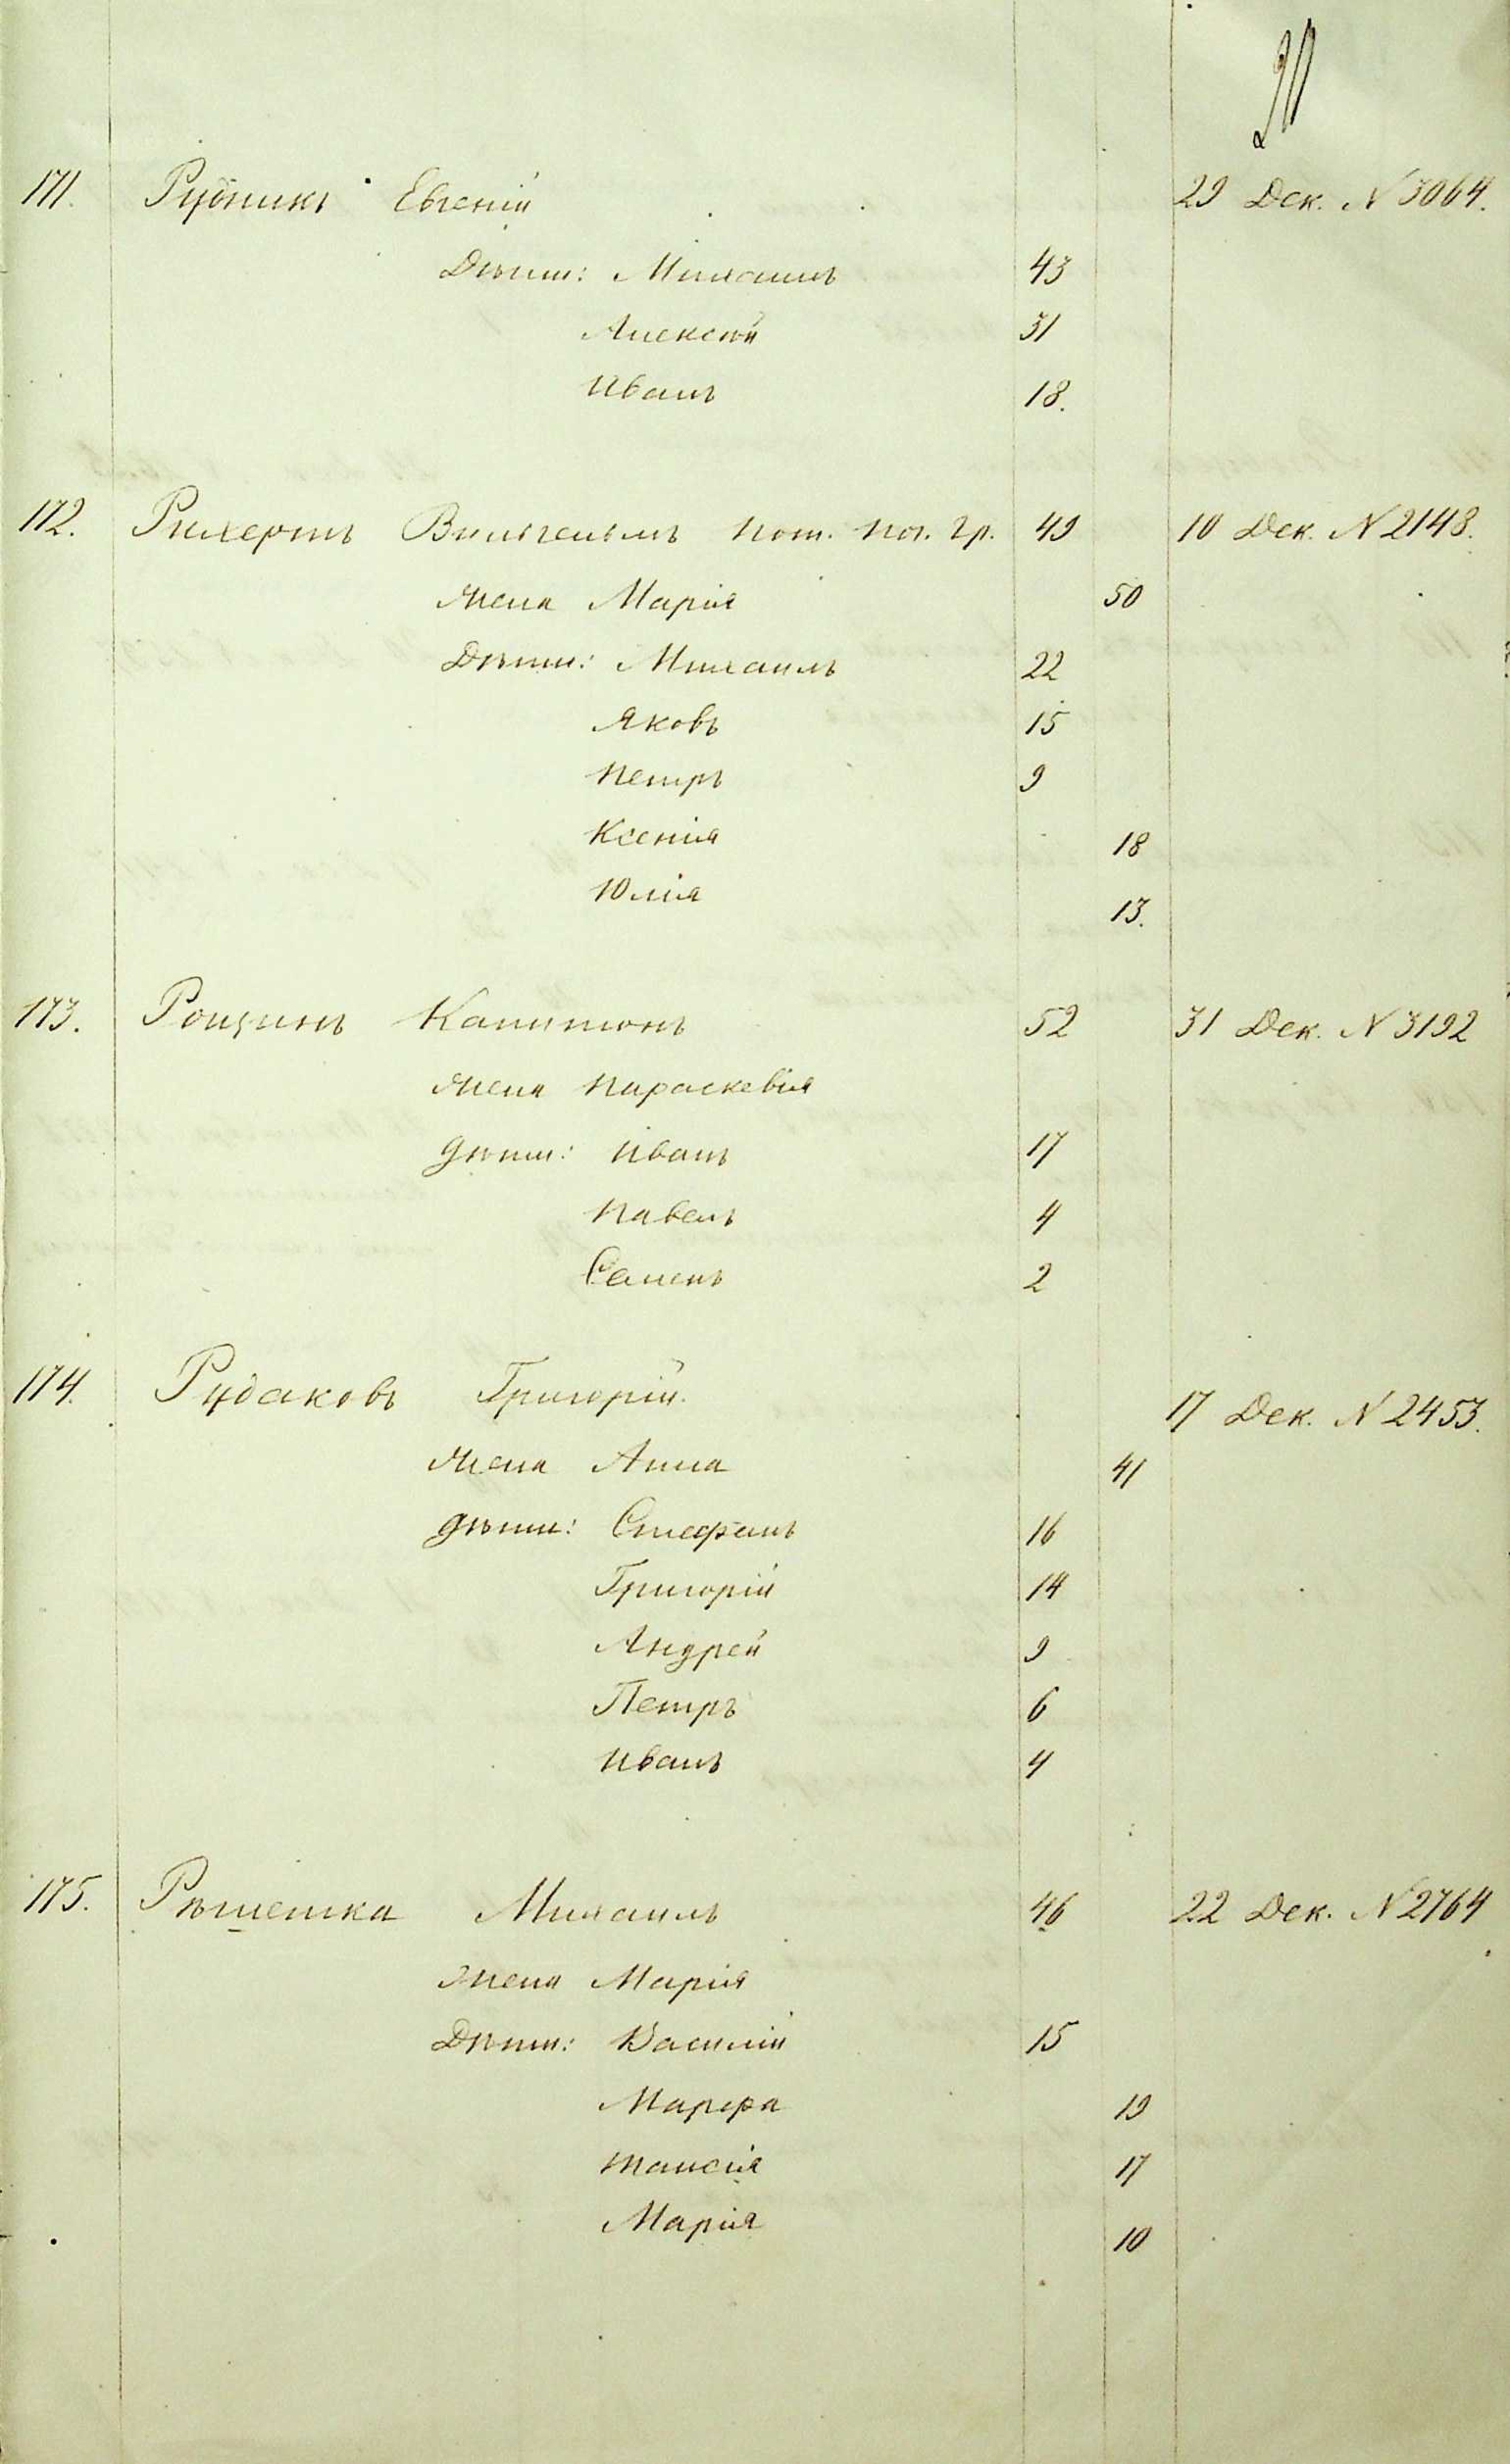 20
171. Рудникъ Евгеній 29 Дек. N 3064.
Дѣти: Михаилъ 43
Алексѣй 31
Иванъ 18.
172. Рихертъ Вильгельмъ пот. поч. гр. 49 10 Дек. N 2148.
жена Марія 50
Дѣти: Михаилъ 22
Яковъ 15
Петръ 9
Ксенія 18
Юлія 13.
173. Рощинъ Капитонъ 52 31 Дек. N 3192
жена Параскевія
дѣти: Иванъ 17
Павелъ 4
Семенъ 2
174. Рудаковъ Григорій. 17 Дек. N 2453.
жена Анна 41
дѣти: Стефанъ 16
Григорій 14
Андрей 9
Петръ 6
Иванъ 4
175. Рѣшетка Михаилъ 46 22 Дек. N 2764
жена Марія
Дѣти: Василій 15
Марфа 19
Таисія 17
Марія 10